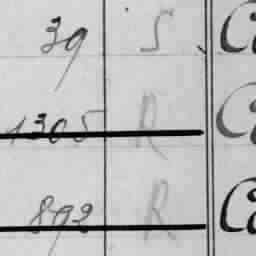 39 S
1305 R
892 R